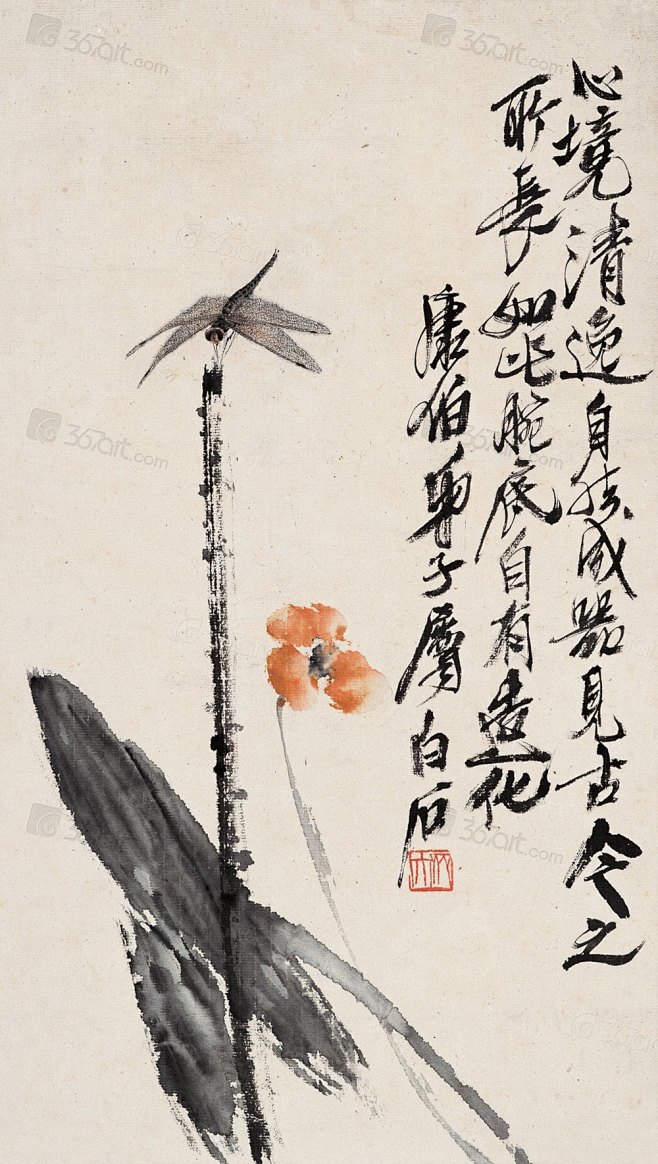 心境清逸自然成器見古今之
所長如此腕底自有造化
康伯弟子屬白石
367art.com
367art.com
367art.com
367art.com
367art.com
367art.com